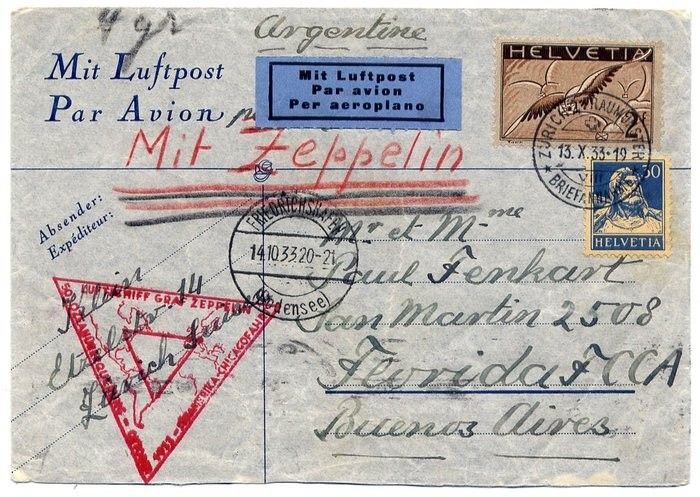 4 gr
Argentine
HELVETIA
Mit Luftpost
Par Avion
Mit Luftpost
Par avion
Per aeroplano
Mit Zeppelin
ZÜRICH
13.X.33-19
BRIEFANNAHME
30
HELVETIA
Absender:
Expéditeur:
FRIEDRICHSHAFEN
14.10.33.20-21
(Bodensee)
Mr et Mme
Paul Fenkart
San Martin 2508
Florida FCCA
Buenos Aires
LUFTSCHIFF GRAF ZEPPELIN
CHICAGOFAHRT
1933
14
Zürich